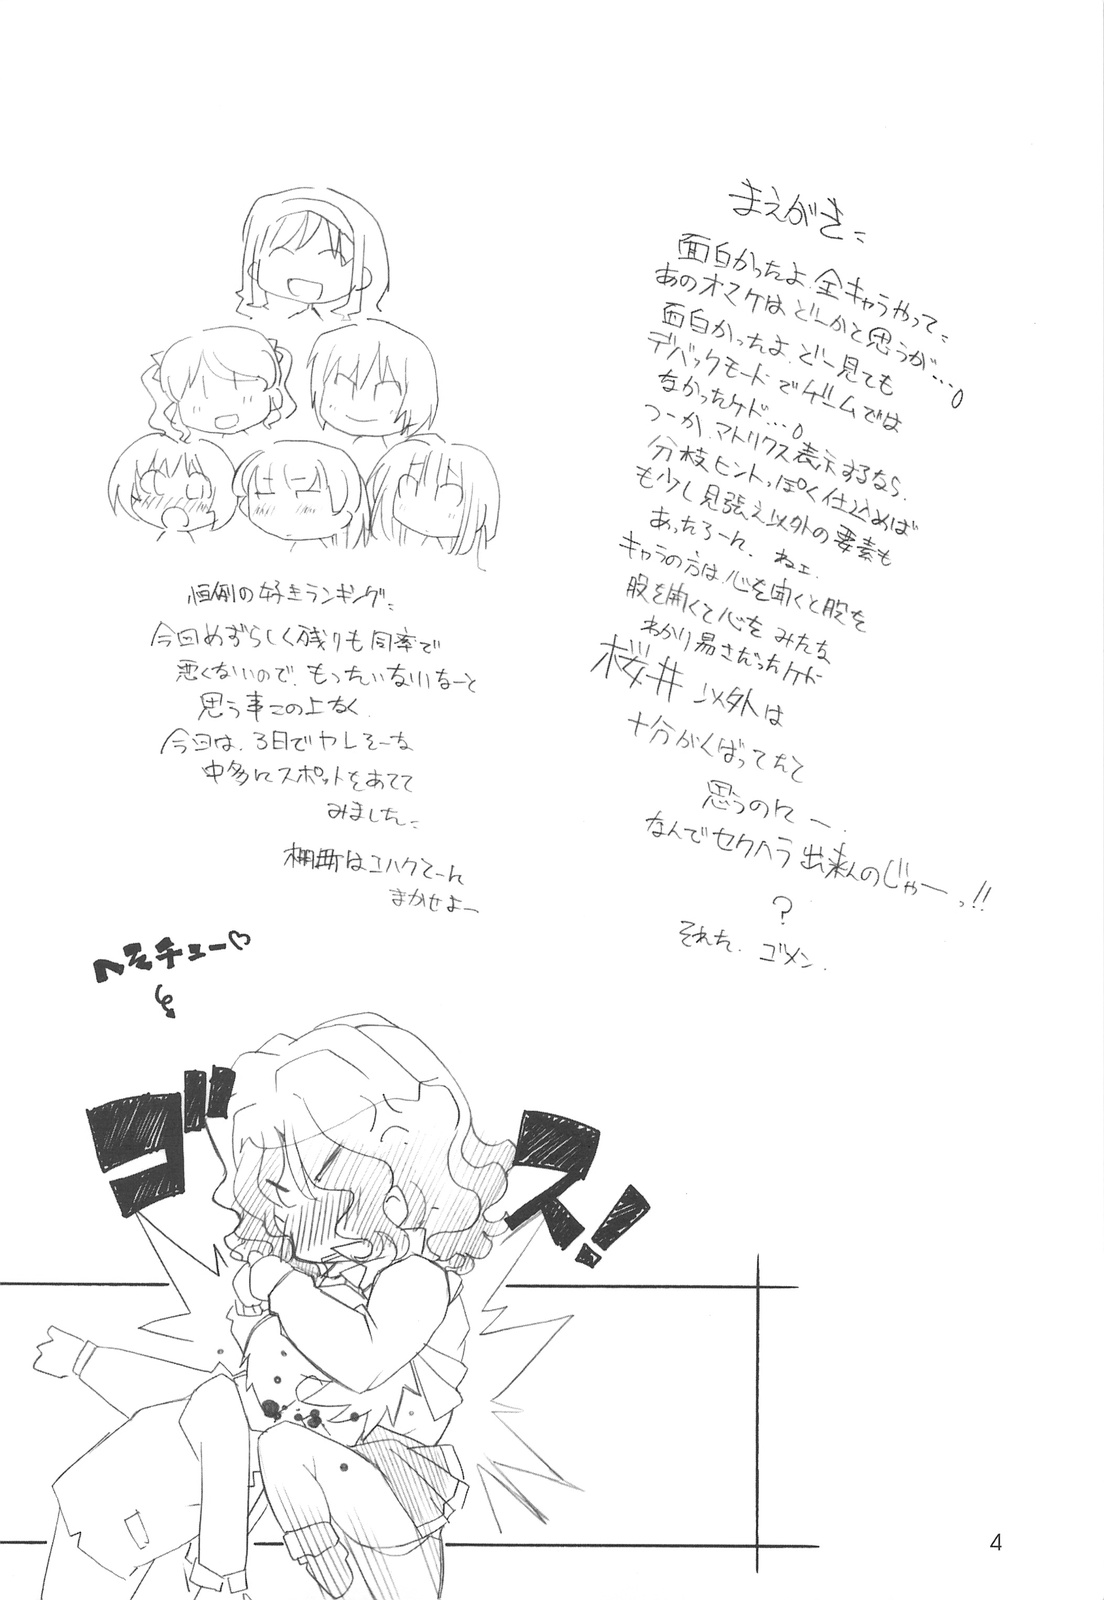 まえがき
面白かったよ、全キャラやって
あのオマケはどーかと思うが…。
面白かったよ、どー見ても
デバックモードでゲームでは
なかったケド…。
つーか、マトリクス表示するなら、
分枝ヒントっぽく仕込めば
も少し見張え以外の要素も
あったろーに、ねェ、
キャラの方は、心を開くと股を
股を開くと心を みたいな
わかり易さだったケド
桜井 以外は
十分がんばってたと
思うのにー、
なんでセクハラ出来んのじゃーっ!!
?
それた、ゴメン、
恒例の好きランキング
今回めずらしく残りも同率で
悪くないので、もったいないなーと
思う事この上なく、
今回は、3日でヤレそーな
中多にスポットをあてて
みました
棚町はコハクてーに
まかせよー
へそチュー♡
ゴス!
4